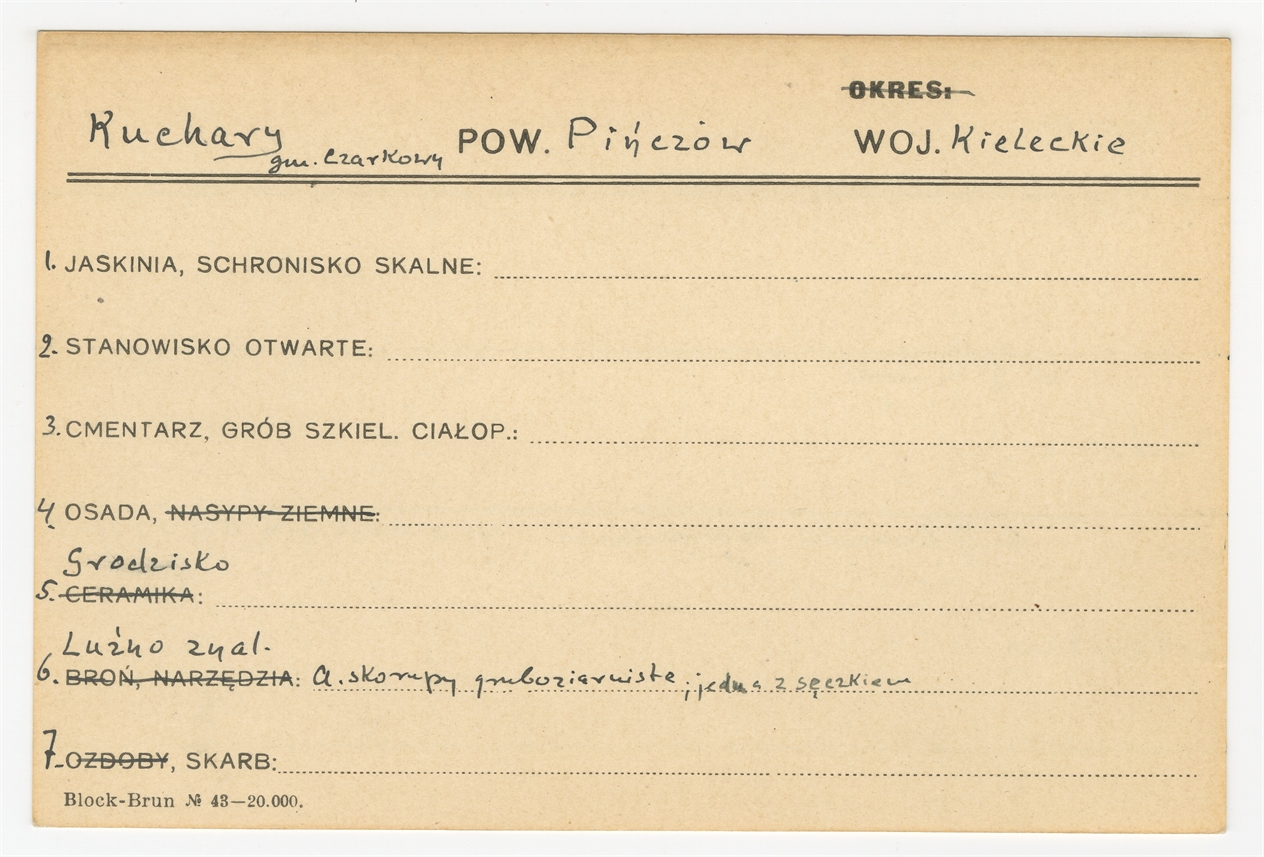 OKRES:
Kuchary POW. Pińczów WOJ. Kieleckie
gm. Czarkowy
1. JASKINIA, SCHRONISKO SKALNE:
2. STANOWISKO OTWARTE:
3. CMENTARZ, GRÓB SZKIEL. CIAŁOP.:
4. OSADA, NASYPY ZIEMNE:
Grodzisko
5. CERAMIKA:
Luźno znal.
6. BROŃ, NARZĘDZIA: a. skorupy gruboziarniste; jedna z sęczkiem
7. OZDOBY, SKARB:
Block-Brun № 43—20.000.